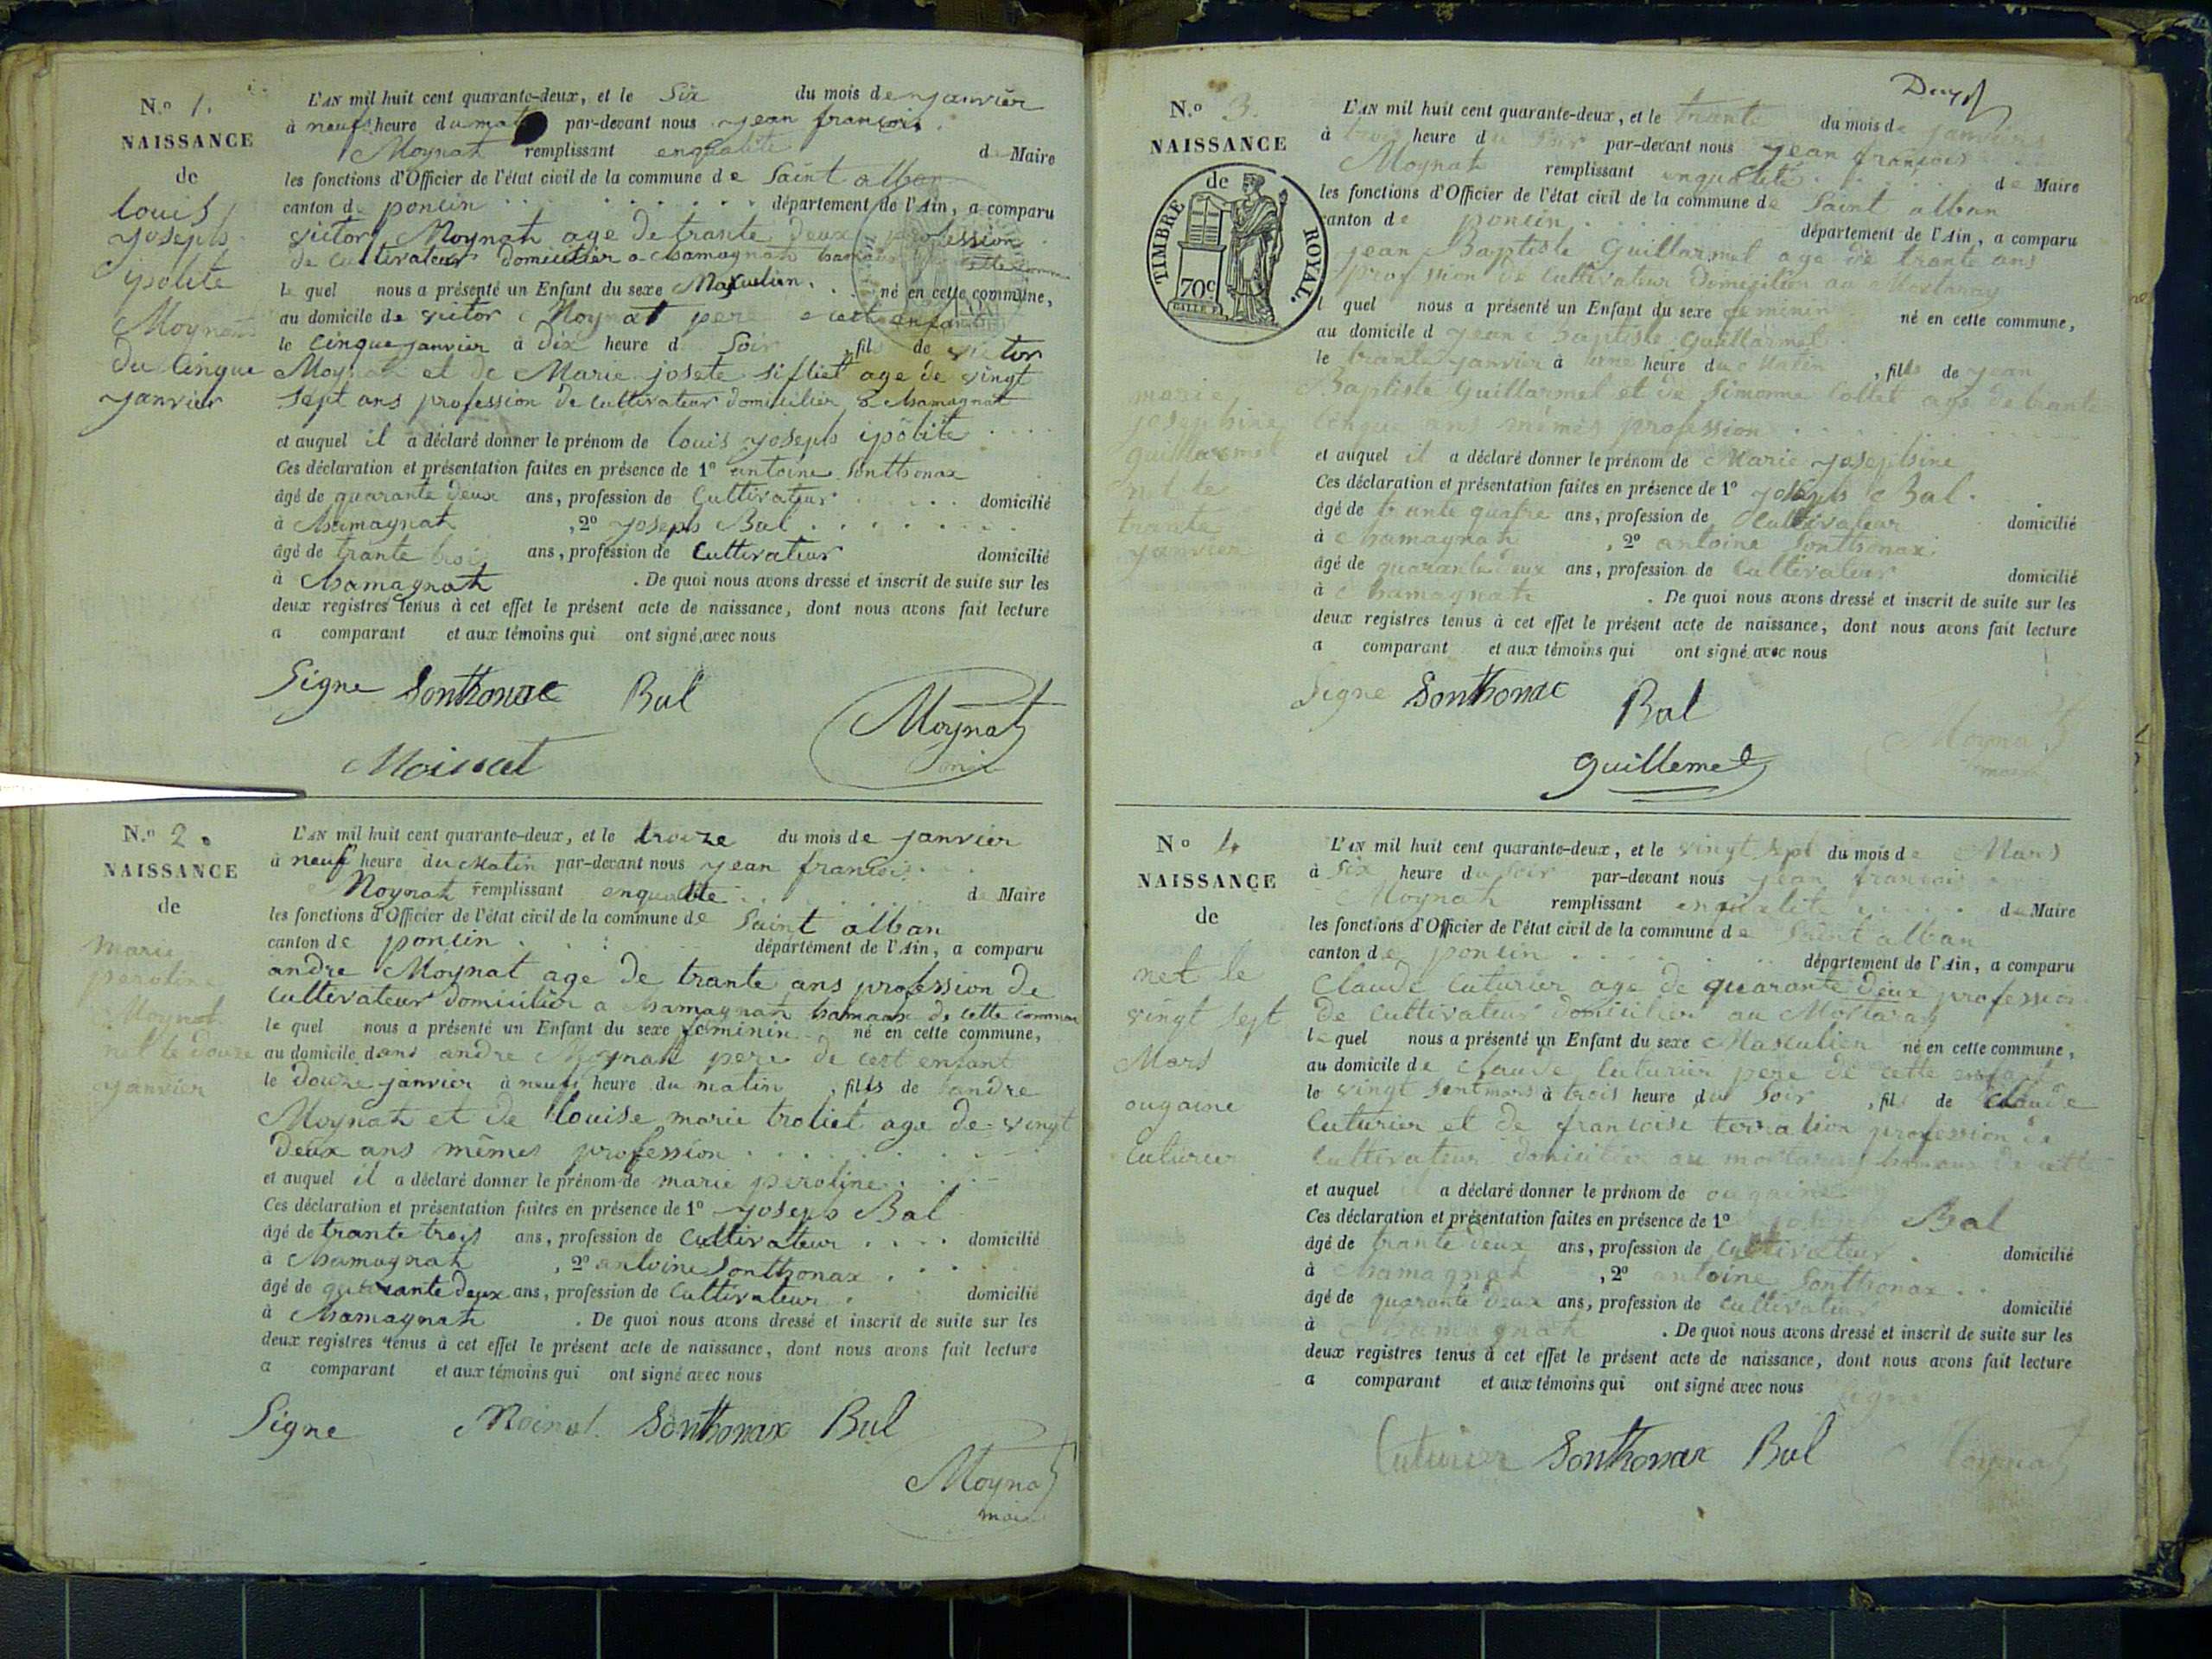 N.º 1.
NAISSANCE
de
louis
joseph
ipolite
Moynat
du cinque
janvier
L'AN mil huit cent quarante-deux, et le Six du mois de janvier
à neuf heure du mat par-devant nous jean francois
Moynat remplissant enqualité de Maire
les fonctions d'Officier de l'état civil de la commune de Saint alban
canton de poncin département de l'Ain, a comparu
victor Moynat age de trante deux profession
de cultivateur domicilier a chamagnat hamaux de cette comm
le quel nous a présenté un Enfant du sexe Masculien. né en cette commune,
au domicile de victor Moynat pere de cest enfant
le cinque janvier à dix heure d Soir , fils de victor
Moynat et de Marie josete sifliet age de vingt
sept ans profession de cultivateur domicilier a chamagnat
et auquel il a déclaré donner le prénom de louis joseph ipolite
Ces déclaration et présentation faites en présence de 1º antoine Sonthonax
âgé de quarante deux ans, profession de Cultivateur domicilié
à chamagnat , 2º joseph Bal
âgé de trante trois ans, profession de Cultivateur domicilié
à chamagnat . De quoi nous avons dressé et inscrit de suite sur les
deux registres tenus à cet effet le présent acte de naissance, dont nous avons fait lecture
a comparant et aux témoins qui ont signé avec nous
Signe Sonthonax Bal
Moynat
Moinat
N.º 2.
NAISSANCE
de
marie
peroline
Moynat
net le douze
janvier
L'AN mil huit cent quarante-deux, et le treize du mois de janvier
à neuf heure du Matin par-devant nous jean francois
Moynat remplissant enqualité de Maire
les fonctions d'Officier de l'état civil de la commune de Saint alban
canton de poncin département de l'Ain, a comparu
andre Moynat age de trante ans profession de
cultivateur domicilier a chamagnat hamaux de cette commun
le quel nous a présenté un Enfant du sexe feminin né en cette commune,
au domicile dans andre Moynat pere de cest enfant
le douze janvier à neuf heure du matin , fills de andre
Moynat et de louise marie troliet age de vingt
deux ans mêmes profession
et auquel il a déclaré donner le prénom de marie peroline
Ces déclaration et présentation faites en présence de 1º joseph Bal
âgé de trante trois ans, profession de Cultivateur domicilié
à chamagnat , 2º antoine Sonthonax
âgé de quarante deux ans, profession de Cultivateur domicilié
à chamagnat . De quoi nous avons dressé et inscrit de suite sur les
deux registres tenus à cet effet le présent acte de naissance, dont nous avons fait lecture
a comparant et aux témoins qui ont signé avec nous
Signe Moinat Sonthonax Bal
Moynat
maire
N.º 3.
NAISSANCE
de
TIMBRE ROYAL.
70c
marie
josephine
guillarmet
net le
trante
janvier
L'AN mil huit cent quarante-deux, et le trante du mois de janvier
à trois heure du Soir par-devant nous jean francois
Moynat remplissant enqualité de Maire
les fonctions d'Officier de l'état civil de la commune de Saint alban
canton de poncin département de l'Ain, a comparu
jean Baptiste Guillarmet age de trante ans
profession de cultivateur domicilier au Mortaray
l quel nous a présenté un Enfant du sexe feminin né en cette commune,
au domicile d jean Baptiste Guillarmet
le trante janvier à une heure du Matin , fills de jean
Baptiste Guillarmet et de Simonne Collet age de trante
cinque ans mêmes profession
et auquel il a déclaré donner le prénom de Marie josephine
Ces déclaration et présentation faites en présence de 1º joseph Bal
âgé de trante quatre ans, profession de Cultivateur domicilié
à chamagnat , 2º antoine Sonthonax
âgé de quarante deux ans, profession de Cultivateur domicilié
à chamagnat . De quoi nous avons dressé et inscrit de suite sur les
deux registres tenus à cet effet le présent acte de naissance, dont nous avons fait lecture
a comparant et aux témoins qui ont signé avec nous
Signe Sonthonax Bal
Moynat
maire
guillemet
Nº 4
NAISSANCE
de
net le
vingt sept
Mars
ougaine
Cuturier
L'AN mil huit cent quarante-deux, et le vingt sept du mois de Mars
à Six heure du Soir par-devant nous jean francois
Moynat remplissant enqualité de Maire
les fonctions d'Officier de l'état civil de la commune de Saint alban
canton de poncin département de l'Ain, a comparu
Claude Cuturier age de quarante deux profession
de cultivateur domicilier au Mortaray
le quel nous a présenté un Enfant du sexe Masculien né en cette commune,
au domicile de Claude Cuturier pere de cette enfant
le vingt Sept mars à trois heure du Soir , fils de Claude
Cuturier et de francoise terralion profession de
cultivateur domicilier au mortaray hamaux de cette
et auquel il a déclaré donner le prénom de ougaine
Ces déclaration et présentation faites en présence de 1º joseph Bal
âgé de trante deux ans, profession de Cultivateur domicilié
à chamagnat , 2º antoine Sonthonax
âgé de quarante deux ans, profession de Cultivateur domicilié
à chamagnat . De quoi nous avons dressé et inscrit de suite sur les
deux registres tenus à cet effet le présent acte de naissance, dont nous avons fait lecture
a comparant et aux témoins qui ont signé avec nous Signe
Cuturier Sonthonax Bal Moynat